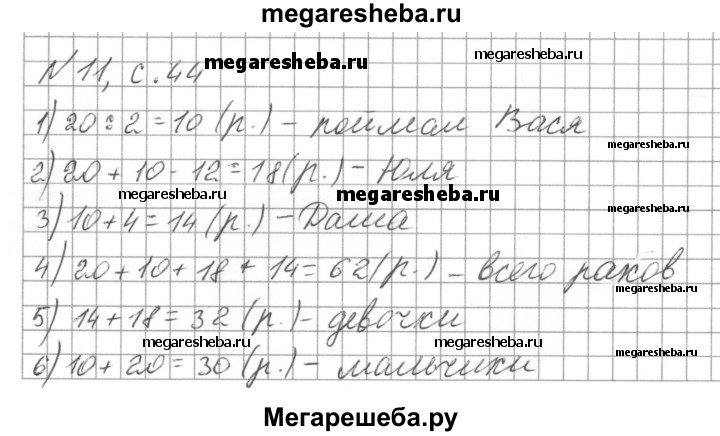 megaresheba.ru
№ 11, с. 44
megaresheba.ru
megaresheba.ru
1) 20 : 2 = 10 (р.) – поймал Вася
megaresheba.ru
2) 20 + 10 - 12 = 18 (р.) – Юля
megaresheba.ru
megaresheba.ru
3) 10 + 4 = 14 (р.) – Даша
megaresheba.ru
4) 20 + 10 + 18 + 14 = 62 (р.) – всего раков
megaresheba.ru
5) 14 + 18 = 32 (р.) – девочки
megaresheba.ru
6) 10 + 20 = 30 (р.) – мальчики
Мегарешеба.ру